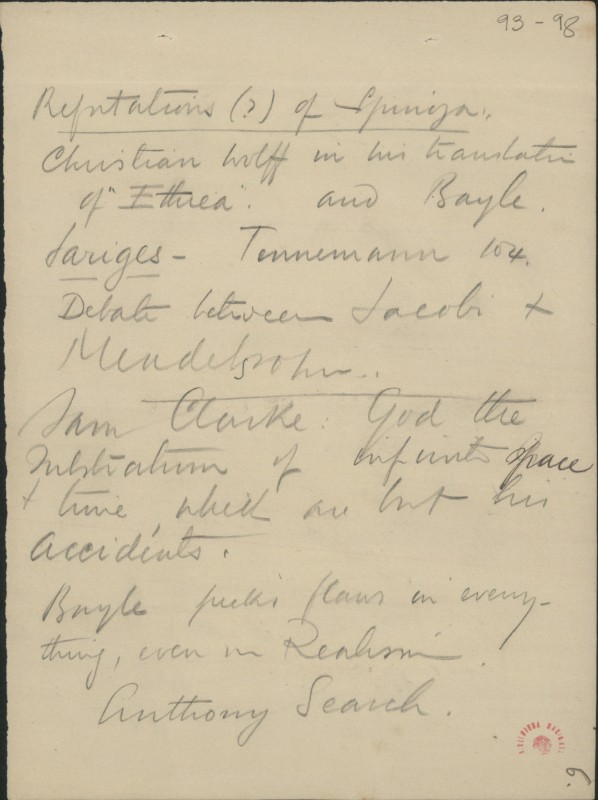 93 - 98
Refutations (?) of Spinoza:
Christian Wolff in his translation
of "Ethica". and Bayle.
Jariges - Tennemann 104.
Debate between Jacobi +
Mendelssohn..
Sam Clarke: God the
substratum of infinite space
+ time, which are but his
accidents.
Bayle picks flaws in every-
thing, even in Realism.
Anthony Search.
BIBLIOTECA NACIONAL
9